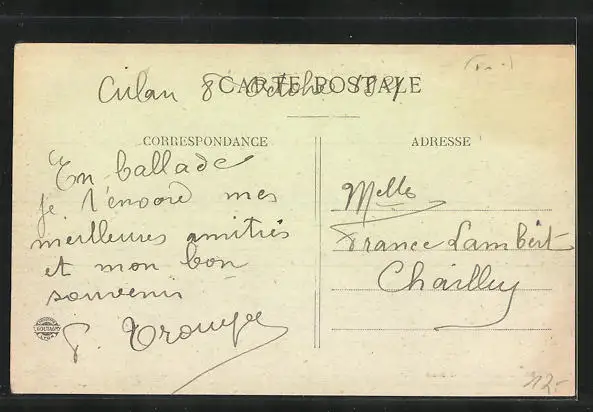 Culan 8 Octobre
CARTE POSTALE
CORRESPONDANCE
ADRESSE
En ballade
je t'envoie mes
meilleures amitiés
et mon bon
souvenir
Melle
France Lambert
Chailly
12.-